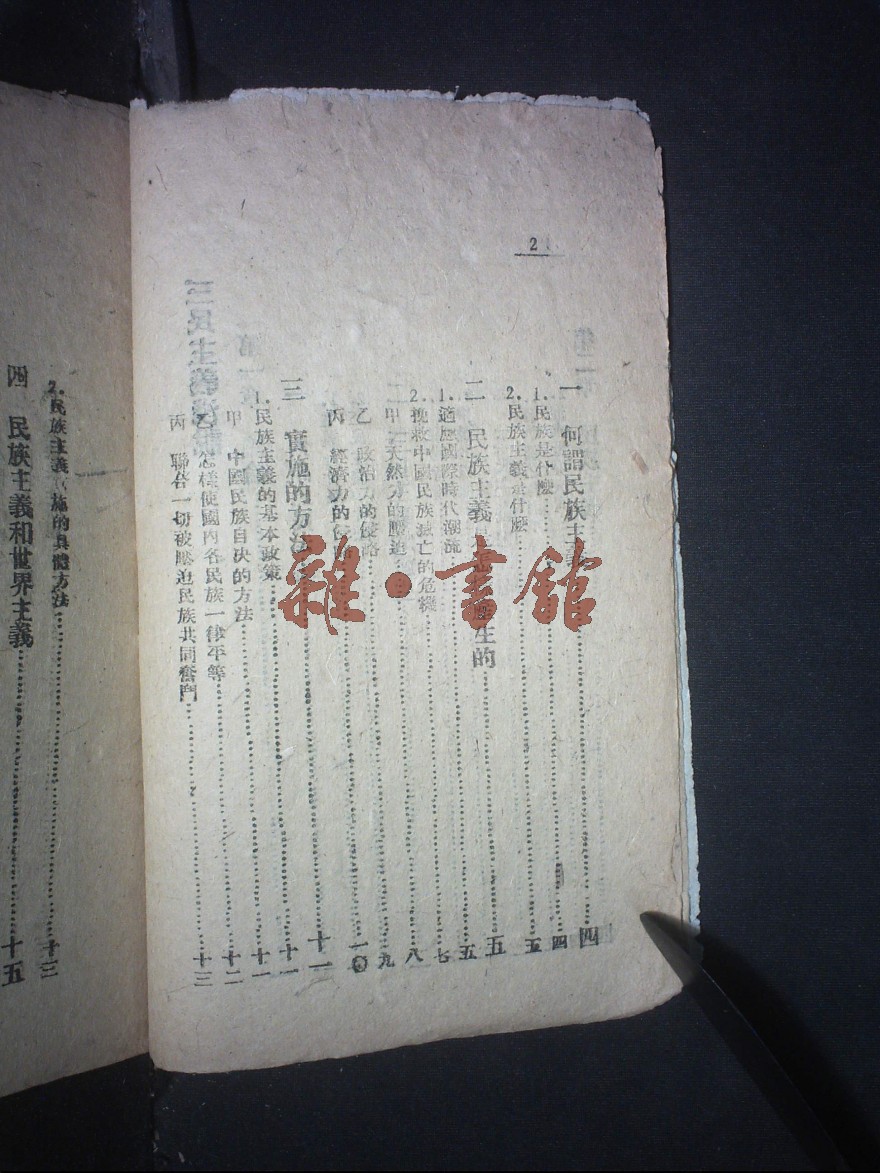 2
一 何謂民族主義……四
1.民族是什麼……四
2.民族主義是什麼……五
二 民族主義 生的……五
1.適應國際時代潮流……五
2.挽救中國民族滅亡的危機……七
甲 天然力的壓迫……八
乙 政治力的侵略……九
丙 經濟力的侵……一〇
三 實施的方法……十一
1.民族主義的基本政策……十一
甲 中國民族自决的方法……十一
乙 怎樣使國內各民族一律平等……十二
丙 聯合一切被壓迫民族共同奮鬥……十三
2.民族主義 施的具體方法……十三
四 民族主義和世界主義……十五
雜·書館